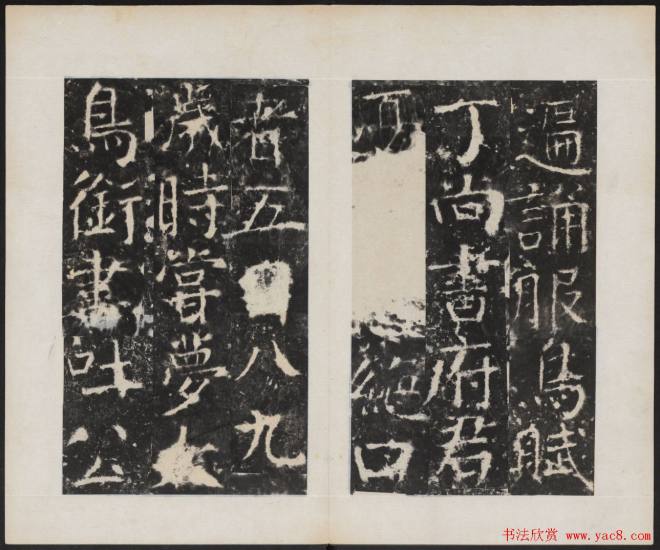 逼誦鵩鳥賦
丁尚書府君
絕口
者五 八九
歲時嘗夢大
鳥銜畫吐公
书法欣赏 www.yac8.com